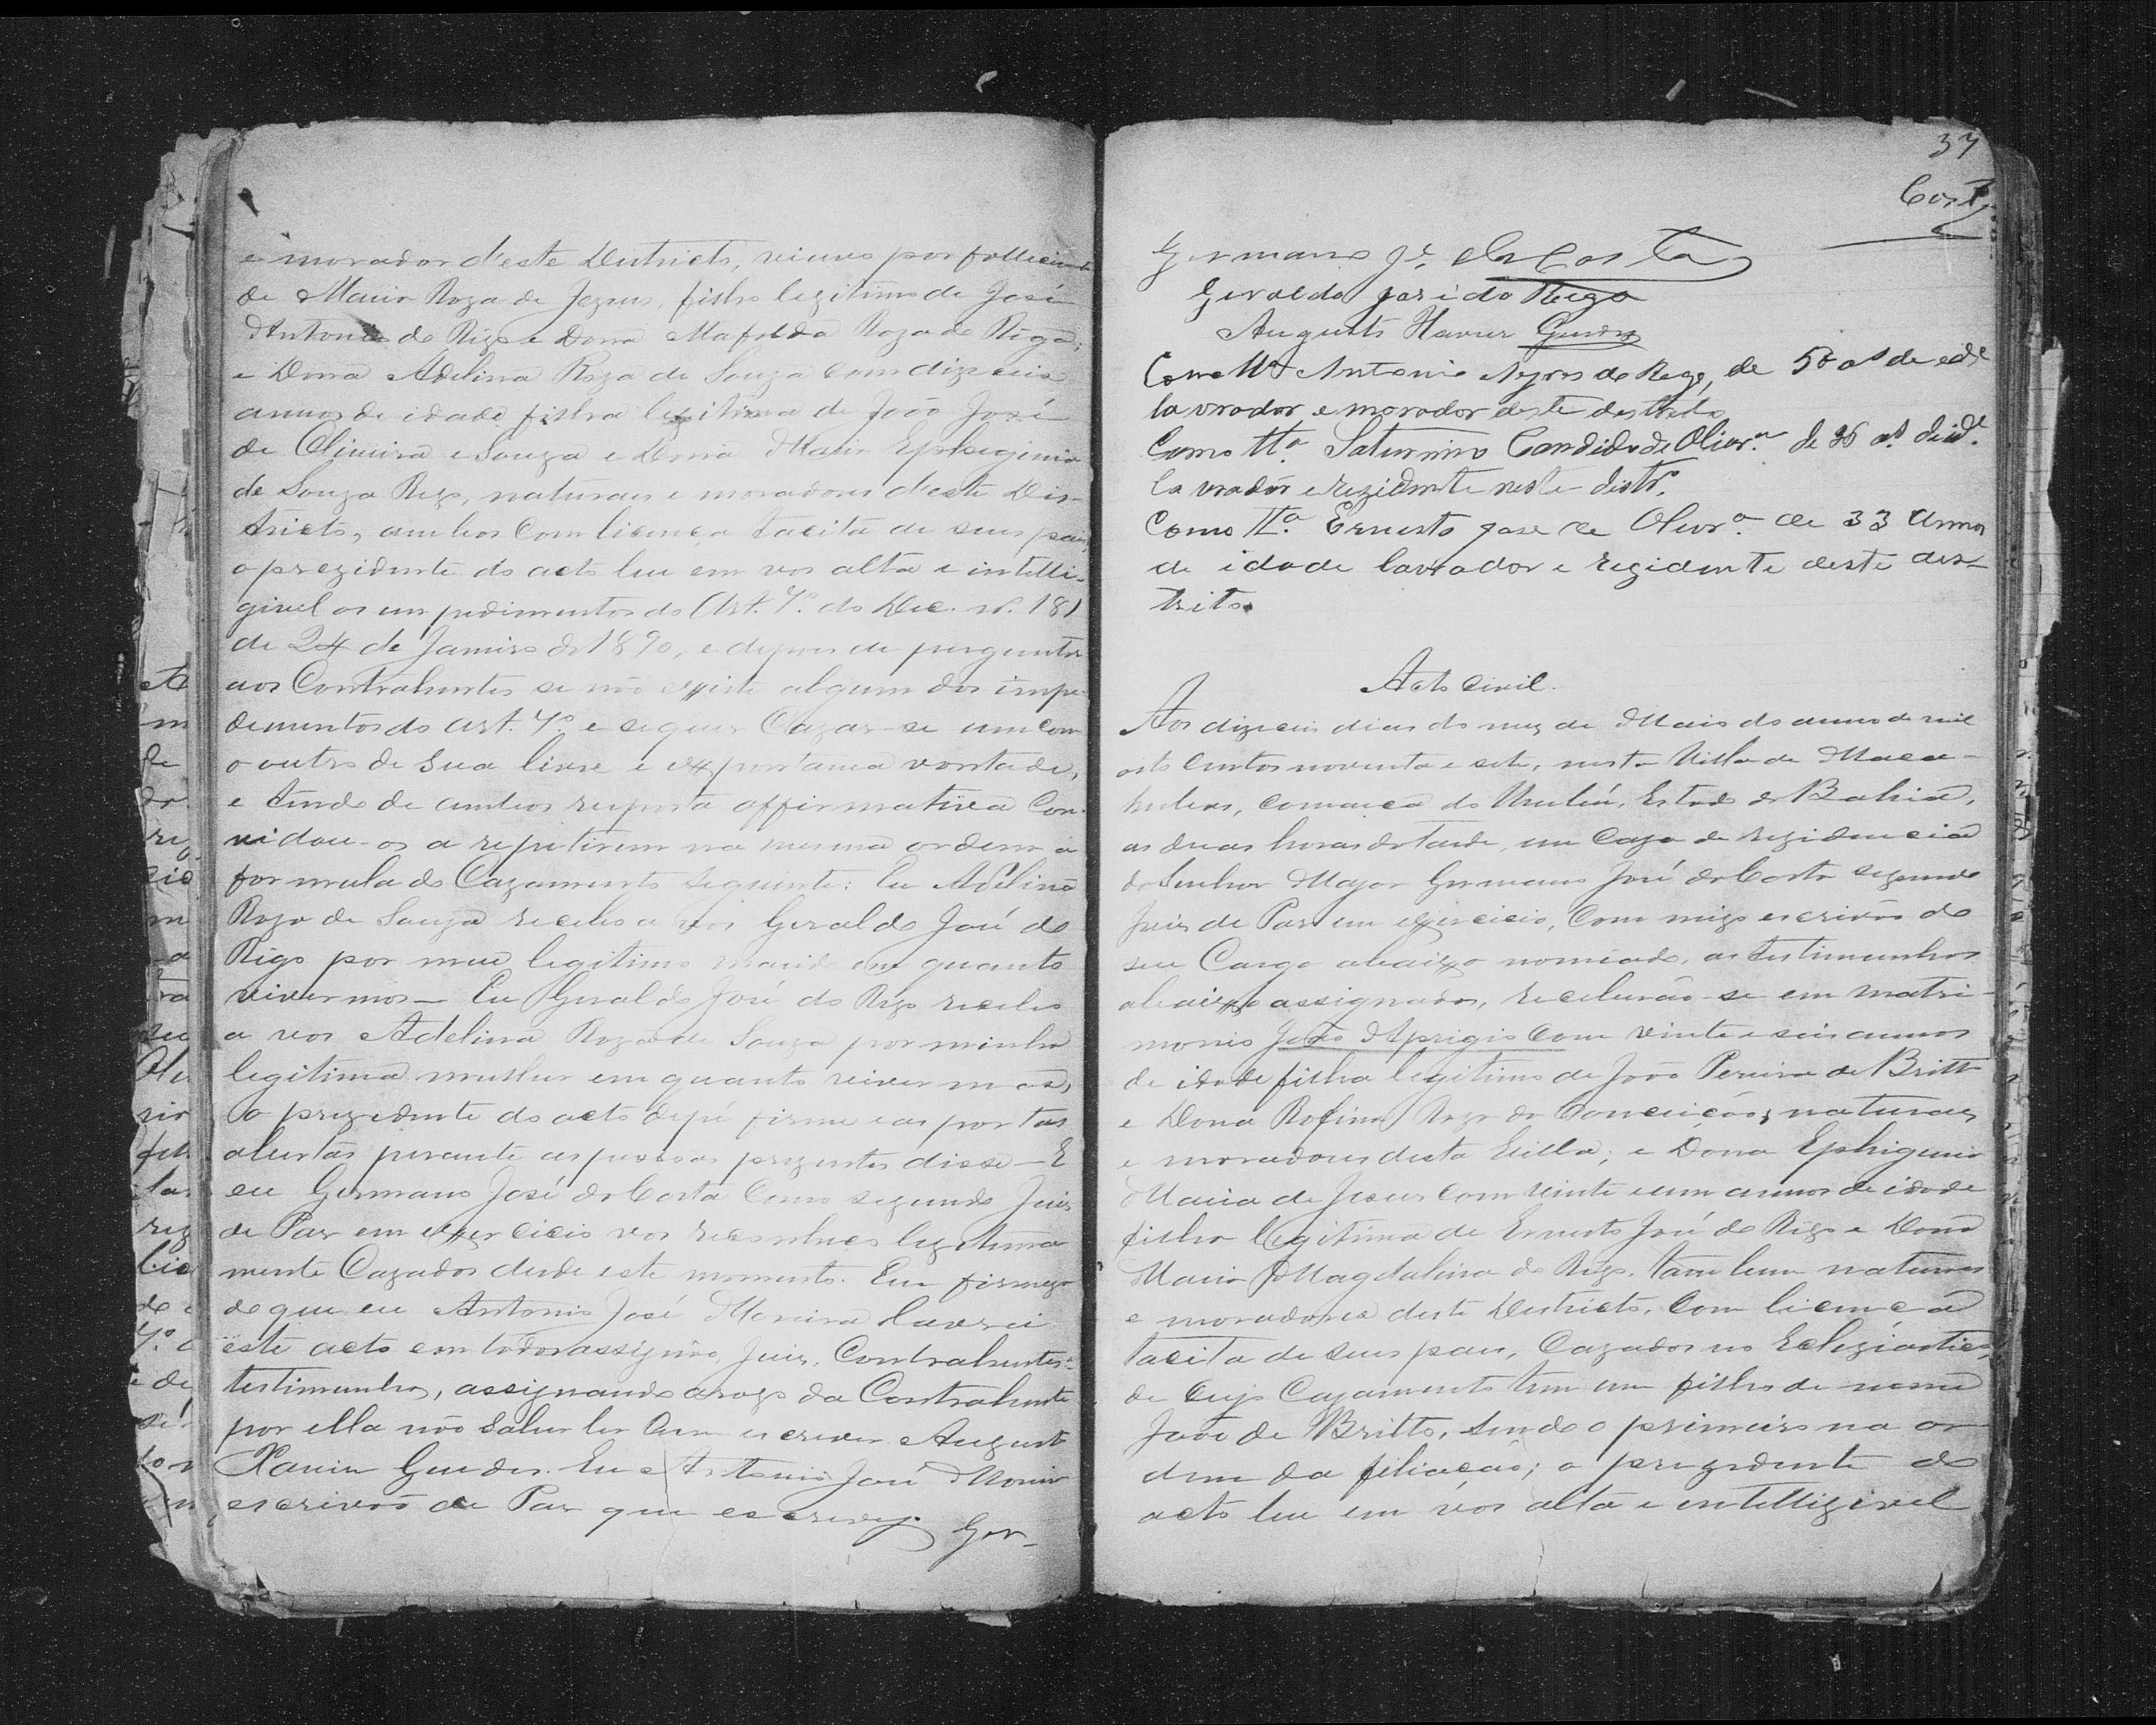 e morador d'este Districto, viuvo por fallecim
de Maria Roza de Jezus, filho legitimo de José
Antonio do Rigo e Dona Mafalda Roza do Rigo;
e Dona Adelina Roza de Souza com dizeceis
annos de idade filha legitima de João José
de Oliveira e Souza e Dona Maria Ephigenia
de Souza Rigo, naturaes e moradores d'este Dis-
tricto, ambos com licença tacita de seus paes,
o prezidente do acto leu em vos alta e intelli-
givel os impedimentos do Art. 7º. do Dec. nº. 181
de 24 de Janeiro de 1890, e depois de perguntar
aos Contrahentes se não existe algum dos impe-
dementos do art. 7º. e se quer Cazar-se um com
o outro de sua livre e expontanea vontade,
e tendo de ambos resposta affirmativa Con-
vidou-os a repetirem na mesma ordem a
formula do Cazamento seguinte: Eu Adelina
Roza de Souza recebo a vos Geraldo José do
Rigo por meu legitimo marido em quanto
vivermos — Eu Geraldo José do Rigo recebo
a vos Adelina Roza de Souza por minha
legitima mulher em quanto vivermos,
o prezedente do acto de pé firme e as portas
abertas perante as pessoas prezentes disse — E
eu Germano José da Costa Como segundo Juis
de Pas em exercicio vos reconheço legitima
mente Cazados desde este momento. Em firmeza
do que eu Antonio José Moreira lavrei
este acto em todos assignão, Juis, Contrahentes
testimunhas, assignando arogo da Contrahente
por ella não saber ler nem escrever Augusto
Xavier Guedes. Eu Antonio José Moreira
escrivão de Pas que escrevy. Ger-
37
Costa
Germano Jé. da Costa
Geraldo José do Rego
Augusto Xavier Guedes
Como ttª Antonio Ayres do Rego, de 50 as de ede
lavrador e morador deste destrito
Como ttª. Saturnino Candido de Olivrª. de 36 as. de ide.
lavrador e rezidente neste distrº.
Como ttª. Ernesto jose de Olivrª. de 33 annos
de idade lavrador e rezidente deste des-
trito.
Acto Civil.
Aos dizeceis dias do mez de Maio do anno de mil
oito Centos noventa e sete, nesta Villa de Maca-
hubas, Comarca do Urubú, Estado da Bahia,
as duas horas da tarde, em Caza de rezidencia
do Senhor Major Germano José da Costa segundo
Juis de Pas em exercicio, Com migo escrivão do
seu Cargo abaixo nomiado, as testimunhas
abaixo assignados, receberão-se em matri-
monio João Aprigio com vinte e seis annos
de idade filho legitimo de João Pereira de Britto
e Dona Rofina Roza da Conceição, naturaes
e moradores desta Villa; e Dona Ephigenia
Maria de Jesus com vinte e um annos de idade
filha legitima de Ernesto José do Rigo e Dona
Maria Magdalina do Rigo, tambem naturaes
e moradores deste Districto, Com licença
tacita de seus paes, Cazados no Ecleziastico,
de cujo Cazamento tem um filho de nome
João de Britto, sendo o primeiro na or
dem da filiação; o prezidente do
acto leu em vós alta e intelligivel